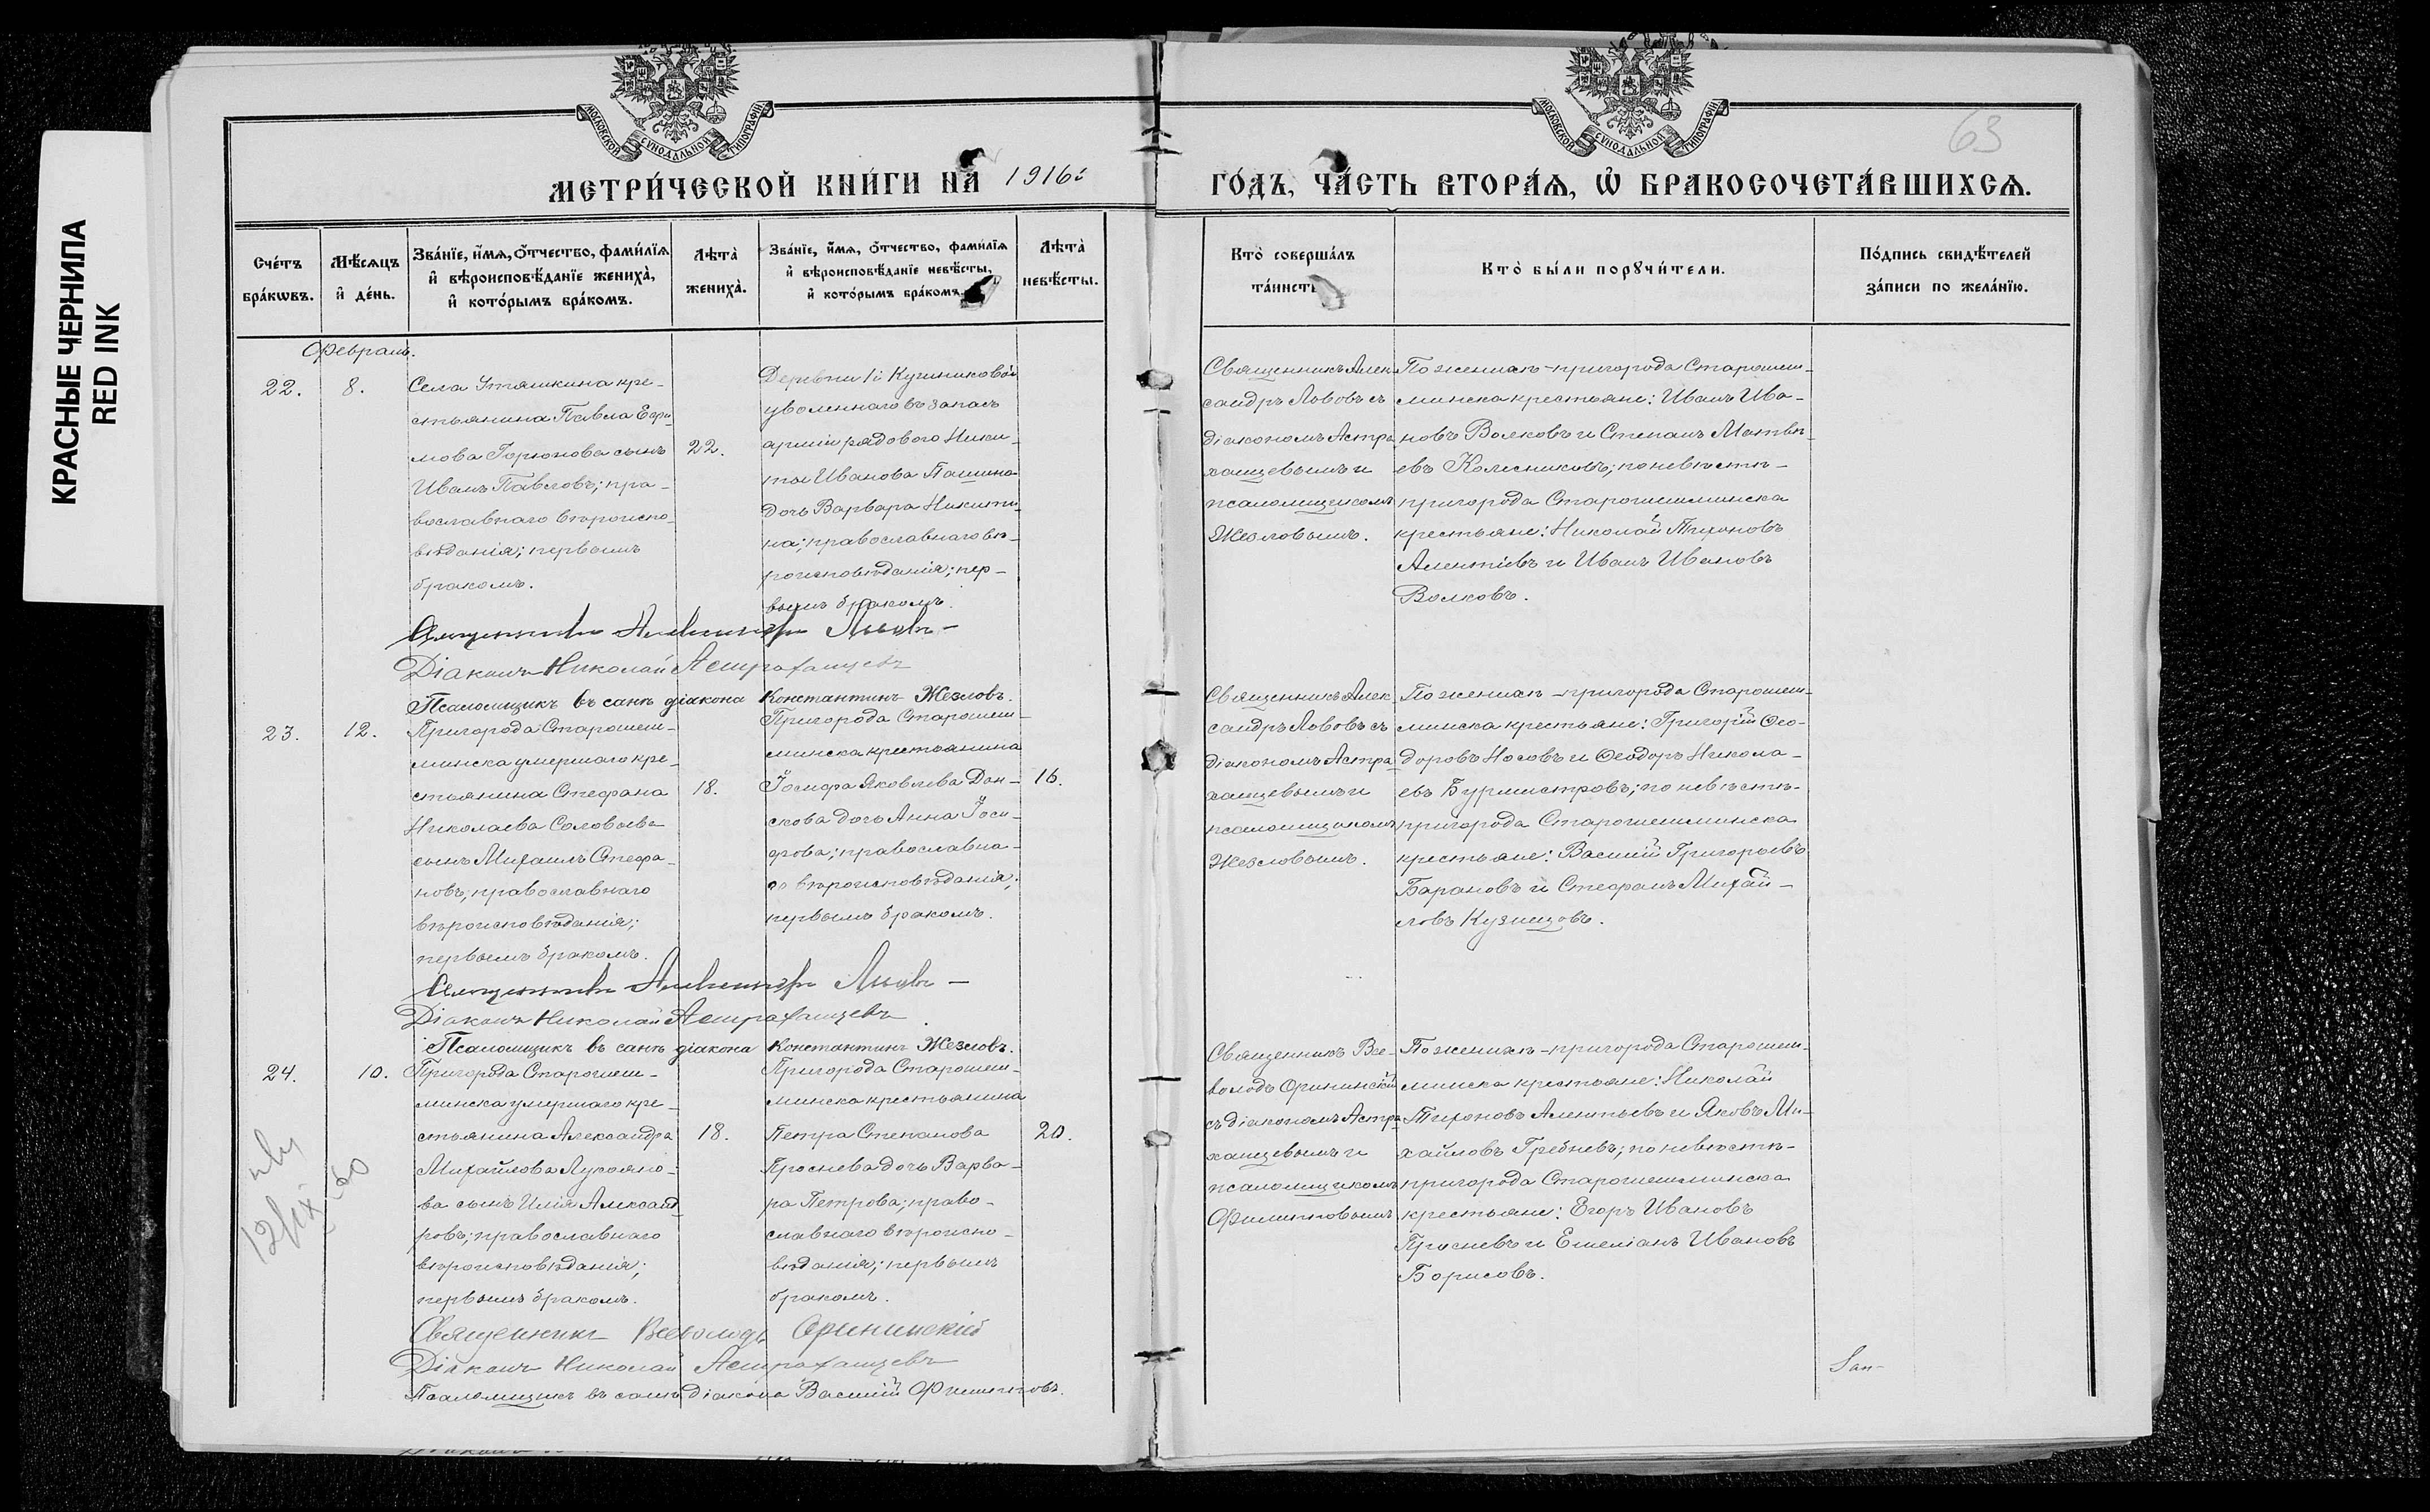 КРАСНЫЕ ЧЕРНИПА
RED INK
МОСКОВСКОЙ СѴНОДАЛЬНОЙ ТИПОГРАФІИ
МОСКОВСКОЙ СѴНОДАЛЬНОЙ ТИПОГРАФІИ
63
МЕТРИ́ЧЕСКОЙ КНИ́ГИ НА 1916г
ГО́ДЪ, ЧА́СТЬ ВТОРА́Ѧ, Ѡ БРАКОСОЧЕТА́ВШИХСѦ.
Сче́тъ бра́кѡвъ.
Мѣ́сѧцъ и҆ де́нь.
Зва́нїе, и҆́мѧ, ѻ҆́тчество, фами́лїѧ
и҆ вѣроисповѣ́данїе жениха̀,
и҆ кото́рымъ бра́комъ.
Лѣта̀ жениха̀.
Зва́нїе, и҆́мѧ, ѻ҆́тчество, фами́лїѧ
и҆ вѣроисповѣ́данїе невѣ́сты,
и҆ кото́рымъ бра́комъ.
Лѣта̀ невѣ́сты.
Кто̀ соверша́лъ
Кто̀ бы́ли порꙋчи́тели.
По́дпись свидѣ́телей
за́писи по жела́нїю.
Февраль.
22.
8.
Села Утяшкина кре-
стьянина Павла Ефи-
мова Горюнова сынъ
Иванъ Павловъ; пра-
вославнаго вѣроиспо-
вѣданія; первымъ
бракомъ.
22.
уволеннаго въ запасъ
арміи рядового Ники-
ты Иванова Пашина
дочь Варвара Никити-
на; православнаго вѣ-
роисповѣданія; пер-
вымъ бракомъ.
Священникъ Алек-
сандръ Львовъ съ
діакономъ Астра-
ханцевымъ и
псаломщикомъ
Жезловымъ.
По женихѣ - пригорода Старошеш-
минска крестьяне: Иванъ Ива-
новъ Волковъ и Степанъ Матвѣ-
евъ Колесниковъ; по невѣстѣ -
пригорода Старошешминска
крестьяне: Николай Тихоновъ
Алентіевъ и Иванъ Ивановъ
Волковъ.
Священникъ Александръ Львовъ -
Діаконъ Николай Астраханцевъ
Псаломщикъ въ санѣ діакона Константинъ Жезловъ.
23.
12.
Пригорода Старошеш-
минска умершаго кре-
стьянина Стефана
Николаева Соловьева
сынъ Михаилъ Стефа-
новъ; православнаго
вѣроисповѣданія;
первымъ бракомъ.
18.
Пригорода Старошеш-
минска крестьянина
Іосифа Яковлева Дон-
скова дочь Анна Іоси-
фова; православна-
го вѣроисповѣданія;
первымъ бракомъ.
16.
Священникъ Алек-
сандръ Львовъ съ
діакономъ Астра-
ханцевымъ и
псаломщикомъ
Жезловымъ.
По женихѣ - пригорода Старошеш-
минска крестьяне: Григорій Ѳео-
доровъ Носовъ и Ѳеодоръ Никола-
евъ Бурмистровъ; по невѣстѣ -
пригорода Старошешминска
крестьяне: Василій Григорьевъ
Барановъ и Стефанъ Михай-
ловъ Кузнецовъ.
Священникъ Александръ Львовъ -
Діаконъ Николай Астраханцевъ
Псаломщикъ въ санѣ діакона Константинъ Жезловъ.
24.
10.
Пригорода Старошеш-
минска умершаго кре-
стьянина Александра
Михайлова Лукояно-
ва сынъ Илія Александ-
ровъ; православнаго
вѣроисповѣданія;
первымъ бракомъ.
18.
Пригорода Старошеш-
минска крестьянина
Петра Степанова
Проснева дочь Варва-
ра Петрова; право-
славнаго вѣроиспо-
вѣданія; первымъ
бракомъ.
20.
Священникъ Все-
володъ Орининскій
съ діакономъ Астра-
ханцевымъ и
псаломщикомъ
Филипповымъ
По женихѣ - пригорода Старошеш-
минска крестьяне: Николай
Тихоновъ Алентьевъ и Яковъ Ми-
хайловъ Гребневъ; по невѣстѣ -
пригорода Старошешминска
крестьяне: Егоръ Ивановъ
Просневъ и Емеліанъ Ивановъ
Борисовъ.
12/IX 60
Священникъ Всеволодъ Орининскій
Діаконъ Николай Астраханцевъ
Псаломщикъ въ санѣ діакона Василій Филипповъ.